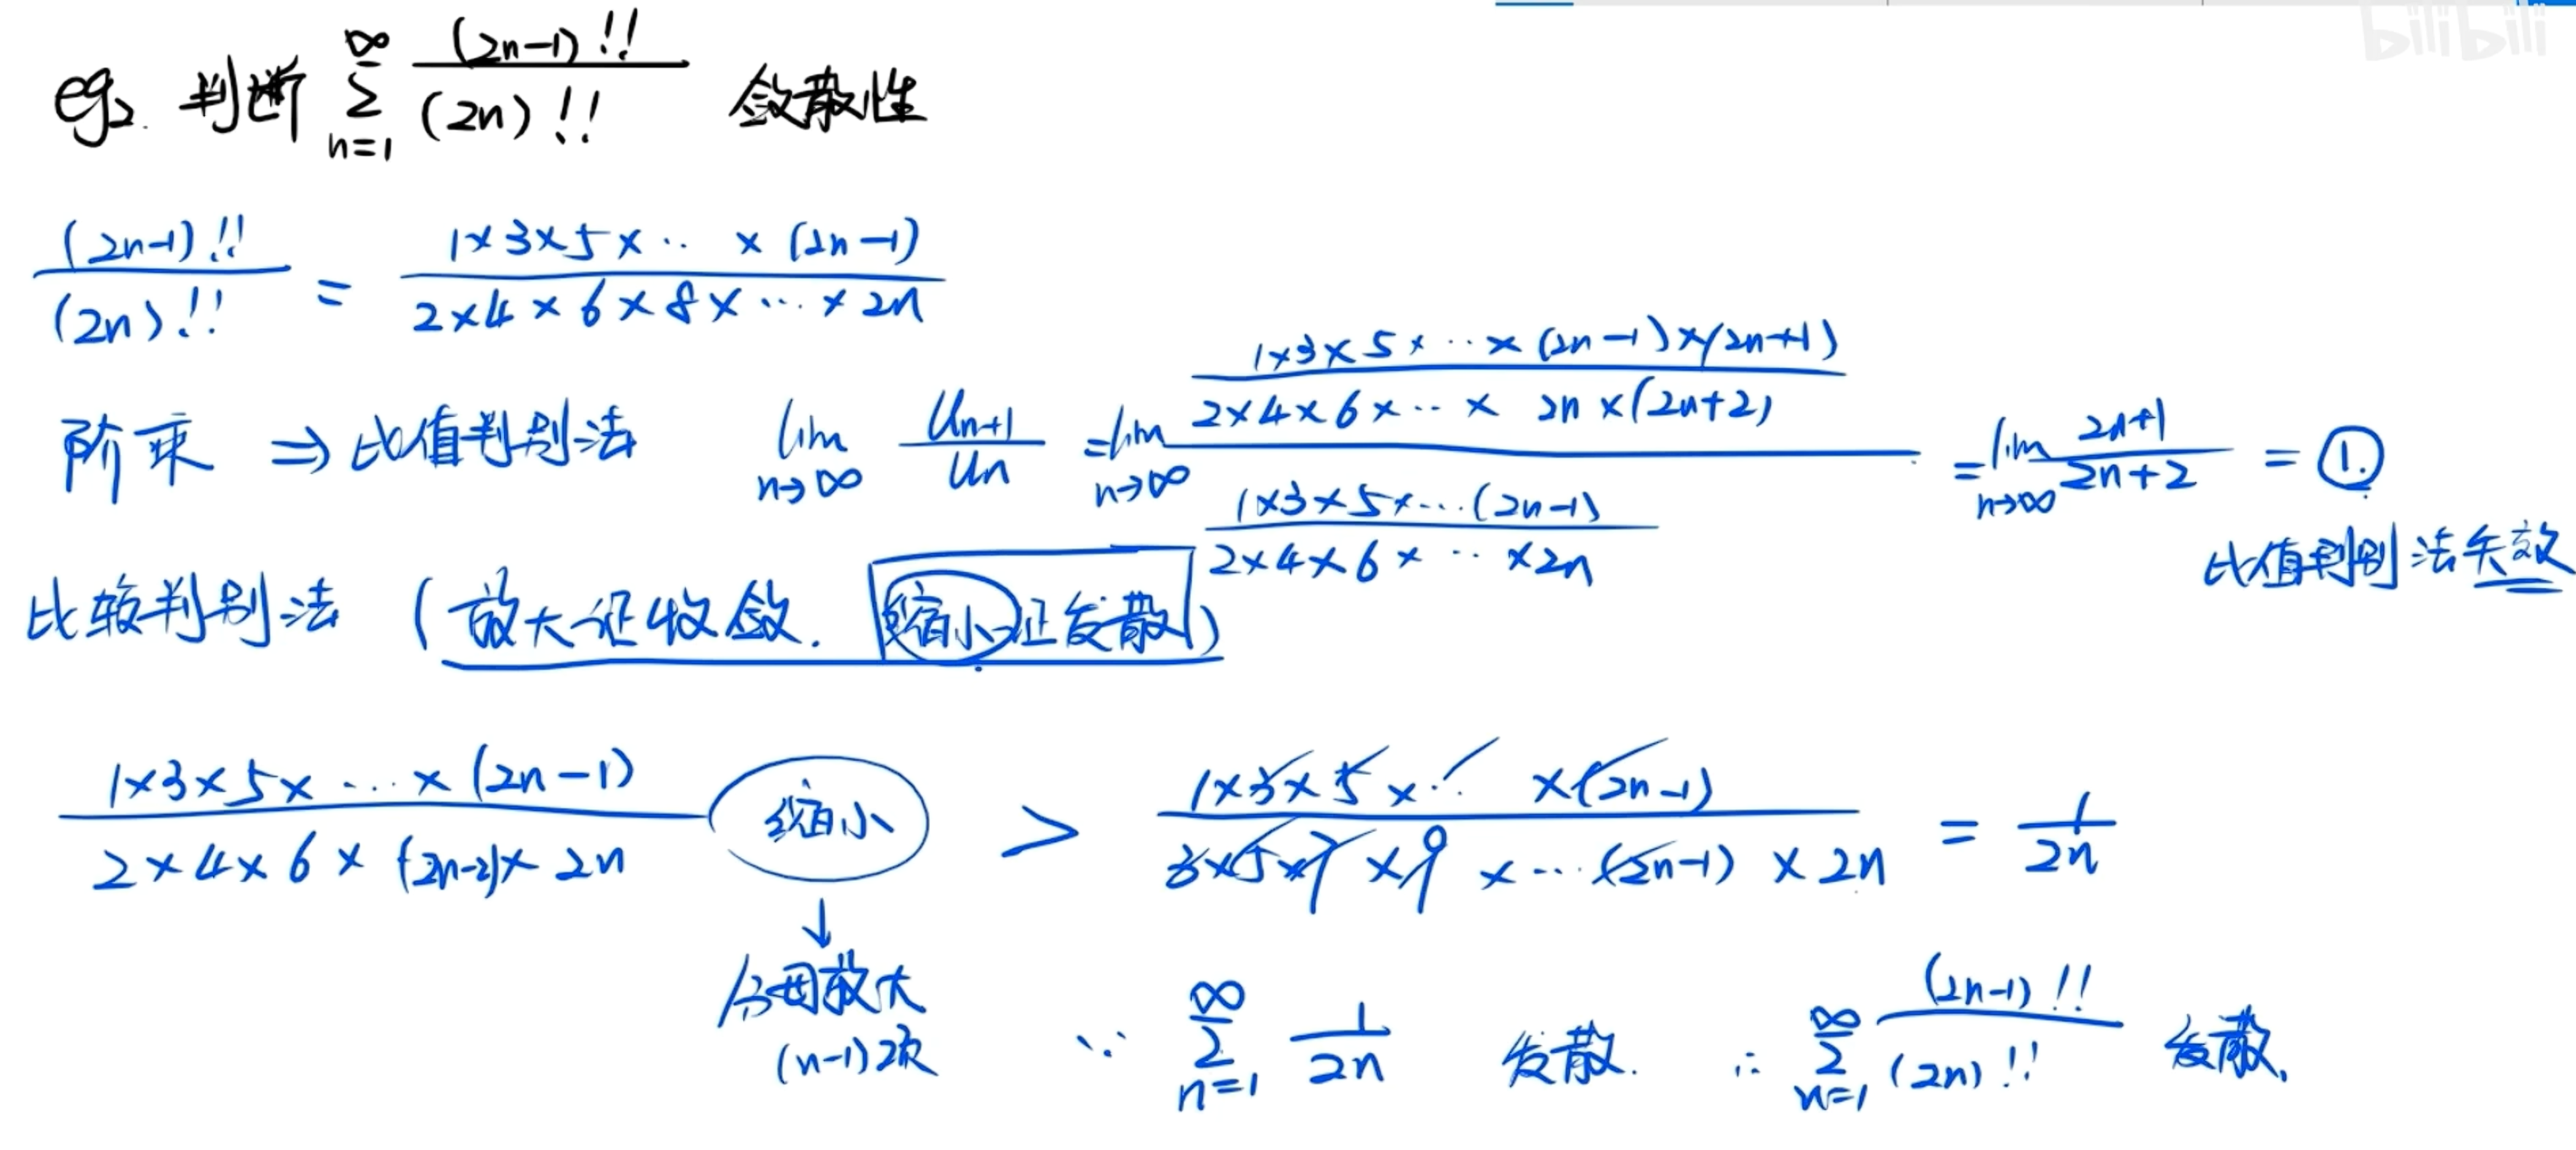 bilibili
eg2. 判断 ∑_{n=1}^{∞} (2n-1)!! / (2n)!! 敛散性
(2n-1)!! / (2n)!! = 1×3×5×‥×(2n-1) / 2×4×6×8×…×2n
阶乘 ⇒ 比值判别法 lim_{n→∞} U_{n+1} / U_n = lim_{n→∞} [1×3×5×…×(2n-1)×(2n+1) / 2×4×6×…×2n×(2n+2)] / [1×3×5×…(2n-1) / 2×4×6×…×2n] = lim_{n→∞} 2n+1 / 2n+2 = ①.
比值判别法失效
比较判别法 (放大证收敛. 缩小证发散)
1×3×5×…×(2n-1) / 2×4×6×(2n-2)×2n 缩小 > 1×3×5×…×(2n-1) / 3×5×7×9×…(2n-1)×2n = 1 / 2n
↓
分母放大
(n-1)次
∵ ∑_{n=1}^{∞} 1 / 2n 发散. ∴ ∑_{n=1}^{∞} (2n-1)!! / (2n)!! 发散.